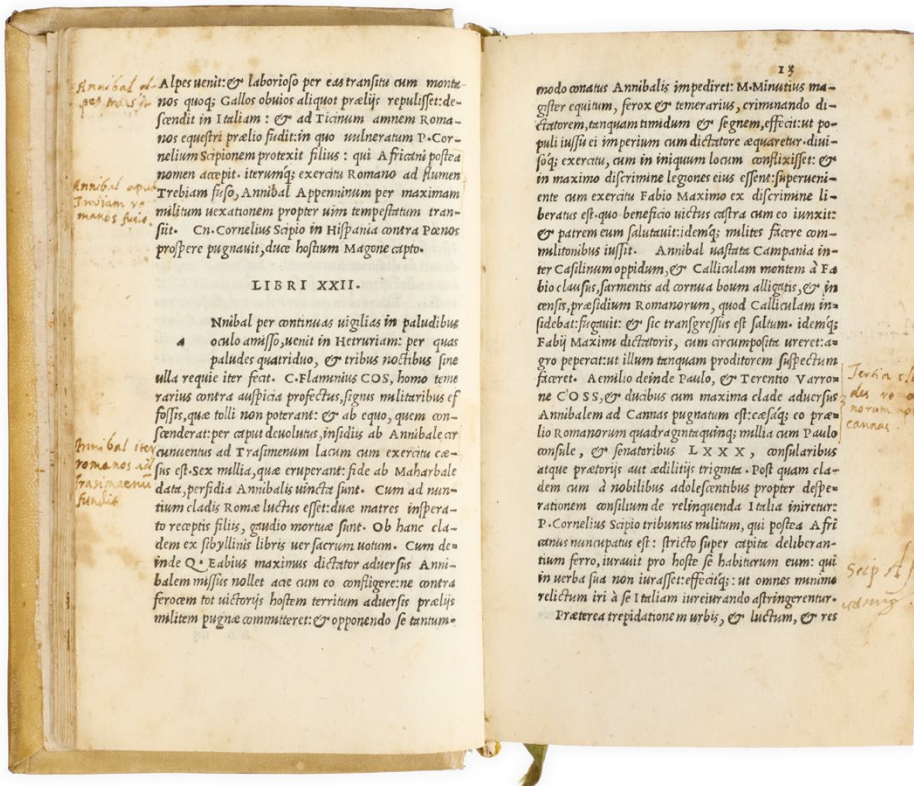 Annibal al
pes trasit
Alpes uenit:& laborioso per eas transitu cum monta=
nos quoq; Gallos obuios aliquot prælijs repulisset:de=
scendit in Italiam : & ad Ticinum amnem Roma=
nos equestri prælio fudit:in quo vulneratum P.Cor=
nelium Scipionem protexit filius : qui Africani postea
nomen accepit. iterumq; exercitu Romano ad flumen
Annibal apud
Trebiam ro
manos fusit.
Trebiam fuso, Annibal Appenninum per maximam
militum uexationem propter uim tempestatum tran=
siit. Cn.Cornelius Scipio in Hispania contra Pœnos
prospere pugnauit,duce hostium Magone capto.
LIBRI XXII.
a Nnibal per continuas uigilias in paludibus
oculo amisso,uenit in Hetruriam: per quas
paludes quatriduo, & tribus noctibus sine
ulla requie iter fecit. C.Flaminius COS, homo teme
rarius contra auspicia profectus,signis militaribus ef
fossis,quæ tolli non poterant: & ab equo, quem con=
scenderat:per caput deuolutus,insidiis ab Annibale cir
Annibal iter
romanos ad
Trasimenu
fundit
cunuentus ad Trasimenum lacum cum exercitu cæ=
sus est.Sex millia,quæ eruperant:fide ab Maharbale
data,perfidia Annibalis uincta sunt. Cum ad nun=
tium cladis Romæ luctus esset:duæ matres inspera=
to receptis filiis, gaudio mortuæ sunt. Ob hanc cla=
dem ex sibyllinis libris uer sacrum uotum. Cum de=
inde Q. Eabius maximus dictator aduersus Anni=
balem missus nollet acie cum eo confligere:ne contra
ferocem tot uictorijs hostem territum aduersis prælijs
militem pugnæ committeret:& opponendo se tantum=
13
modo conatus Annibalis impediret: M.Minutius ma=
gister equitum, ferox & temerarius, criminando di=
ctatorem,tanquam timidum & segnem,effecit:ut po=
puli iussu ei imperium cum dictatore æquaretur.diui=
soq; exercitu, cum in iniquum locum conflixisset: &
in maximo discrimine legiones eius essent:superueni=
ente cum exercitu Fabio Maximo ex discrimine li=
beratus est.quo beneficio uictus castra cum eo iunxit:
& patrem eum salutauit:idemq; milites facere com=
militonibus iussit. Annibal uastata Campania in=
ter Casilinum oppidum,& Calliculam montem à Fa=
bio clausus,sarmentis ad cornua boum alligatis,& in
censis,præsidium Romanorum, quod Calliculam in=
sidebat:fugauit: & sic transgressus est saltum. idemq;
Fabij Maximi dictatoris, cum circumposita ureret:a=
gro pepercit:ut illum tanquam proditorem suspectum
faceret. Aemilio deinde Paulo, & Terentio Varro=
ne COSS,& ducibus cum maxima clade aduersus
Annibalem ad Cannas pugnatum est:cæsaq; eo præ=
Tertia cla
des roma
norum apu
cannas
lio Romanorum quadragintaquinq; millia cum Paulo
consule, & senatoribus LXXX, consularibus
atque prætorijs aut ædilitijs triginta. Post quam cla=
dem cum à nobilibus adolescentibus propter despe=
rationem consilium de relinquenda Italia iniretur:
P.Cornelius Scipio tribunus militum, qui postea Afri
canus nuncupatus est: stricto super capita deliberan=
tium ferro, iurauit pro hoste se habiturum eum: qui
in uerba sua non iurasset:effecitq; ut omnes minime
relictum iri à se Italiam iureiurando astringerentur.
Scip
Præterea trepidationem urbis, & luctum, & res